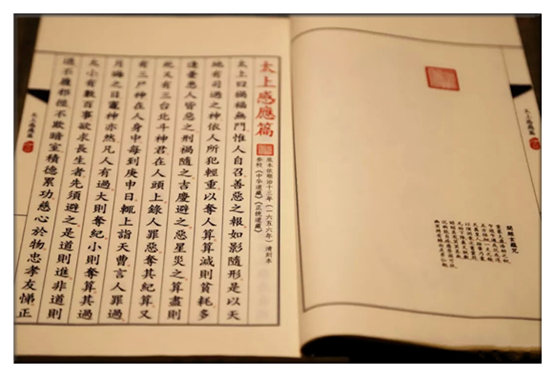 太上感應篇
開經玄蘊咒
太上感應篇
底本依順治十三年（一六五六年）清刻本
參校《中华道藏》《正統道藏》
太上曰禍福無門惟人自召善惡之報如影隨形是以天
地有司過之神依人所犯輕重以奪人算算減則貧耗多
逢憂患人皆惡之刑禍隨之吉慶避之惡星災之算盡則
死又有三台北斗神君在人頭上錄人罪惡奪其紀算又
有三尸神在人身中每到庚申日輒上詣天曹言人罪過
月晦之日竈神亦然凡人有過大則奪紀小則奪算其過
大小有數百事欲求長生者先須避之是道則進非道則
退不履邪徑不欺暗室積德累功慈心於物忠孝友悌正
太上感應篇